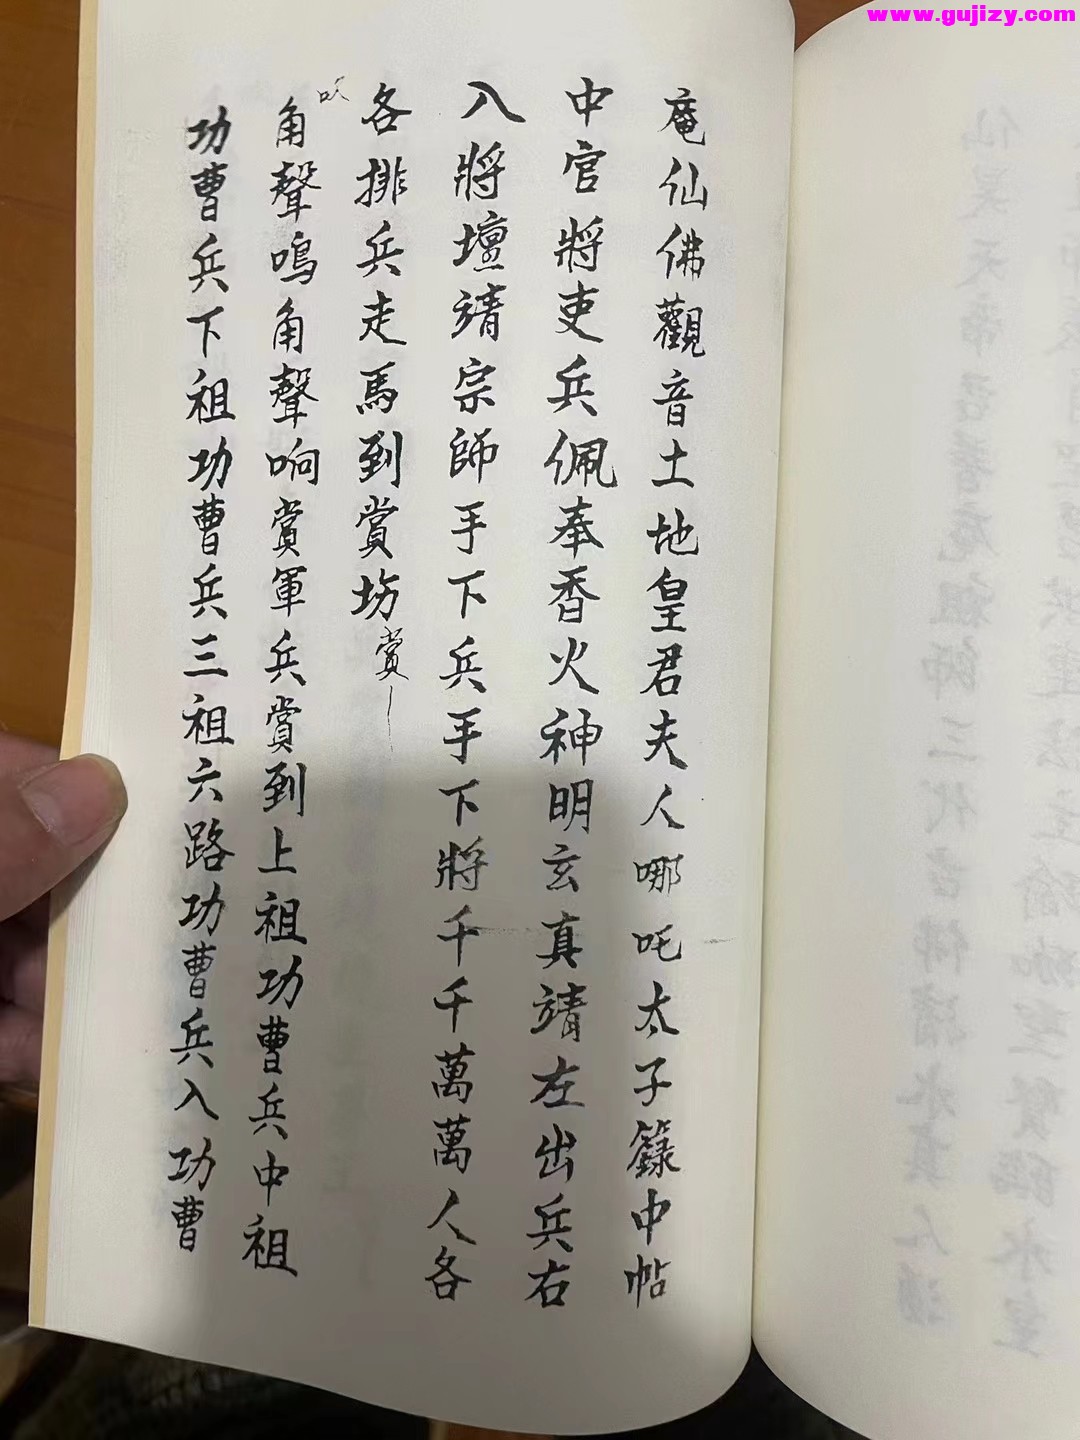 www.gujizy.com
庵仙佛觀音土地皇君夫人哪吒太子籙中帖
中官將吏兵佩奉香火神明玄真靖左出兵右
入將壇靖宗師手下兵手下將千千萬萬人各
各排兵走馬到賞坊賞
吹
角聲鳴角聲响賞軍兵賞到上祖功曹兵中祖
功曹兵下祖功曹兵三祖六路功曹兵入功曹